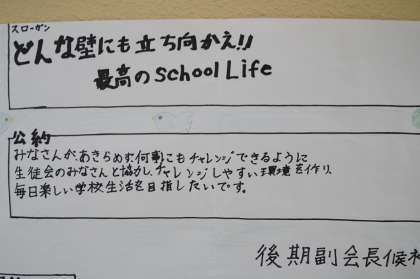 スローガン
どんな壁にも立ち向かえ!!
最高のSchool Life
公約
みなさんが、あきらめず何事にもチャレンジできるように
生徒会のみなさんと協力し、チャレンジしやすい環境を作り、
毎日楽しい学校生活を目指したいです。
後期副会長候補